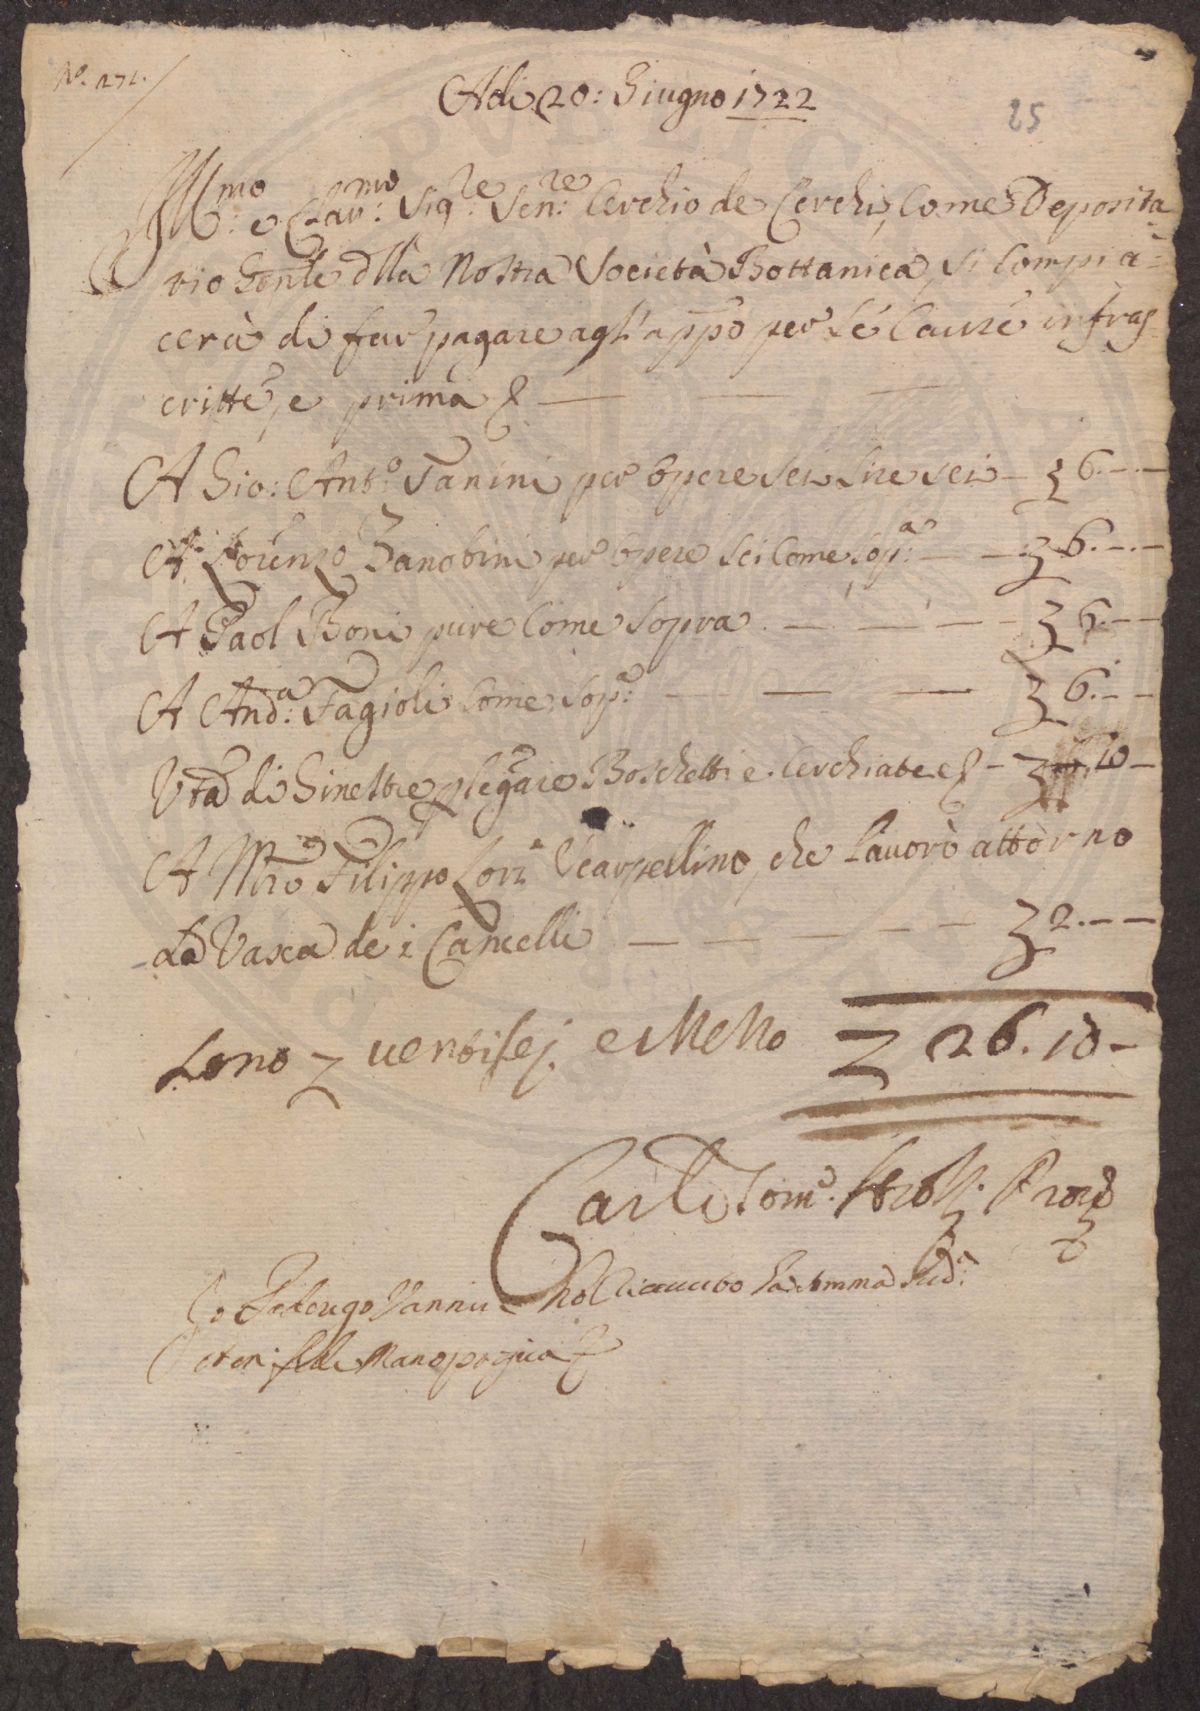 No. 271.
Adi 20: Giugno 1722
25
Ill.mo: e Clar.mo: Sig.re: Sen.re: Cerchio de Cerchi, Come Deposita
rio Gen.le d'lla Nostra Società Bottanica, si Compia=
cerà di far pagare agl'app.o per Le Cause infras
critte, e prima
A Gio: Ant.o: Fanini per Opere sei Lire sei — 6.—.—
A Lorenzo Zanobini per opere sei Come sop.a: — — 6.—.—
A Paol Boni pure Come Sopra . — — — — 6.— —
A And.a: Fagioli Come sop.a: — — — 6.— —
di Ginestre p legare Boschetti e Cerchiate — 10 —
A Mro Filippo Lori Scarpellino, che Lavorò attorno
La Vasca de i Cancelli — — — — — 2.— —
Sono ventisej e Mezzo 26. 10 —
Carlo Tom.o
Io Vannu ho Riceuuto La Somma Sud.a
Manopropria